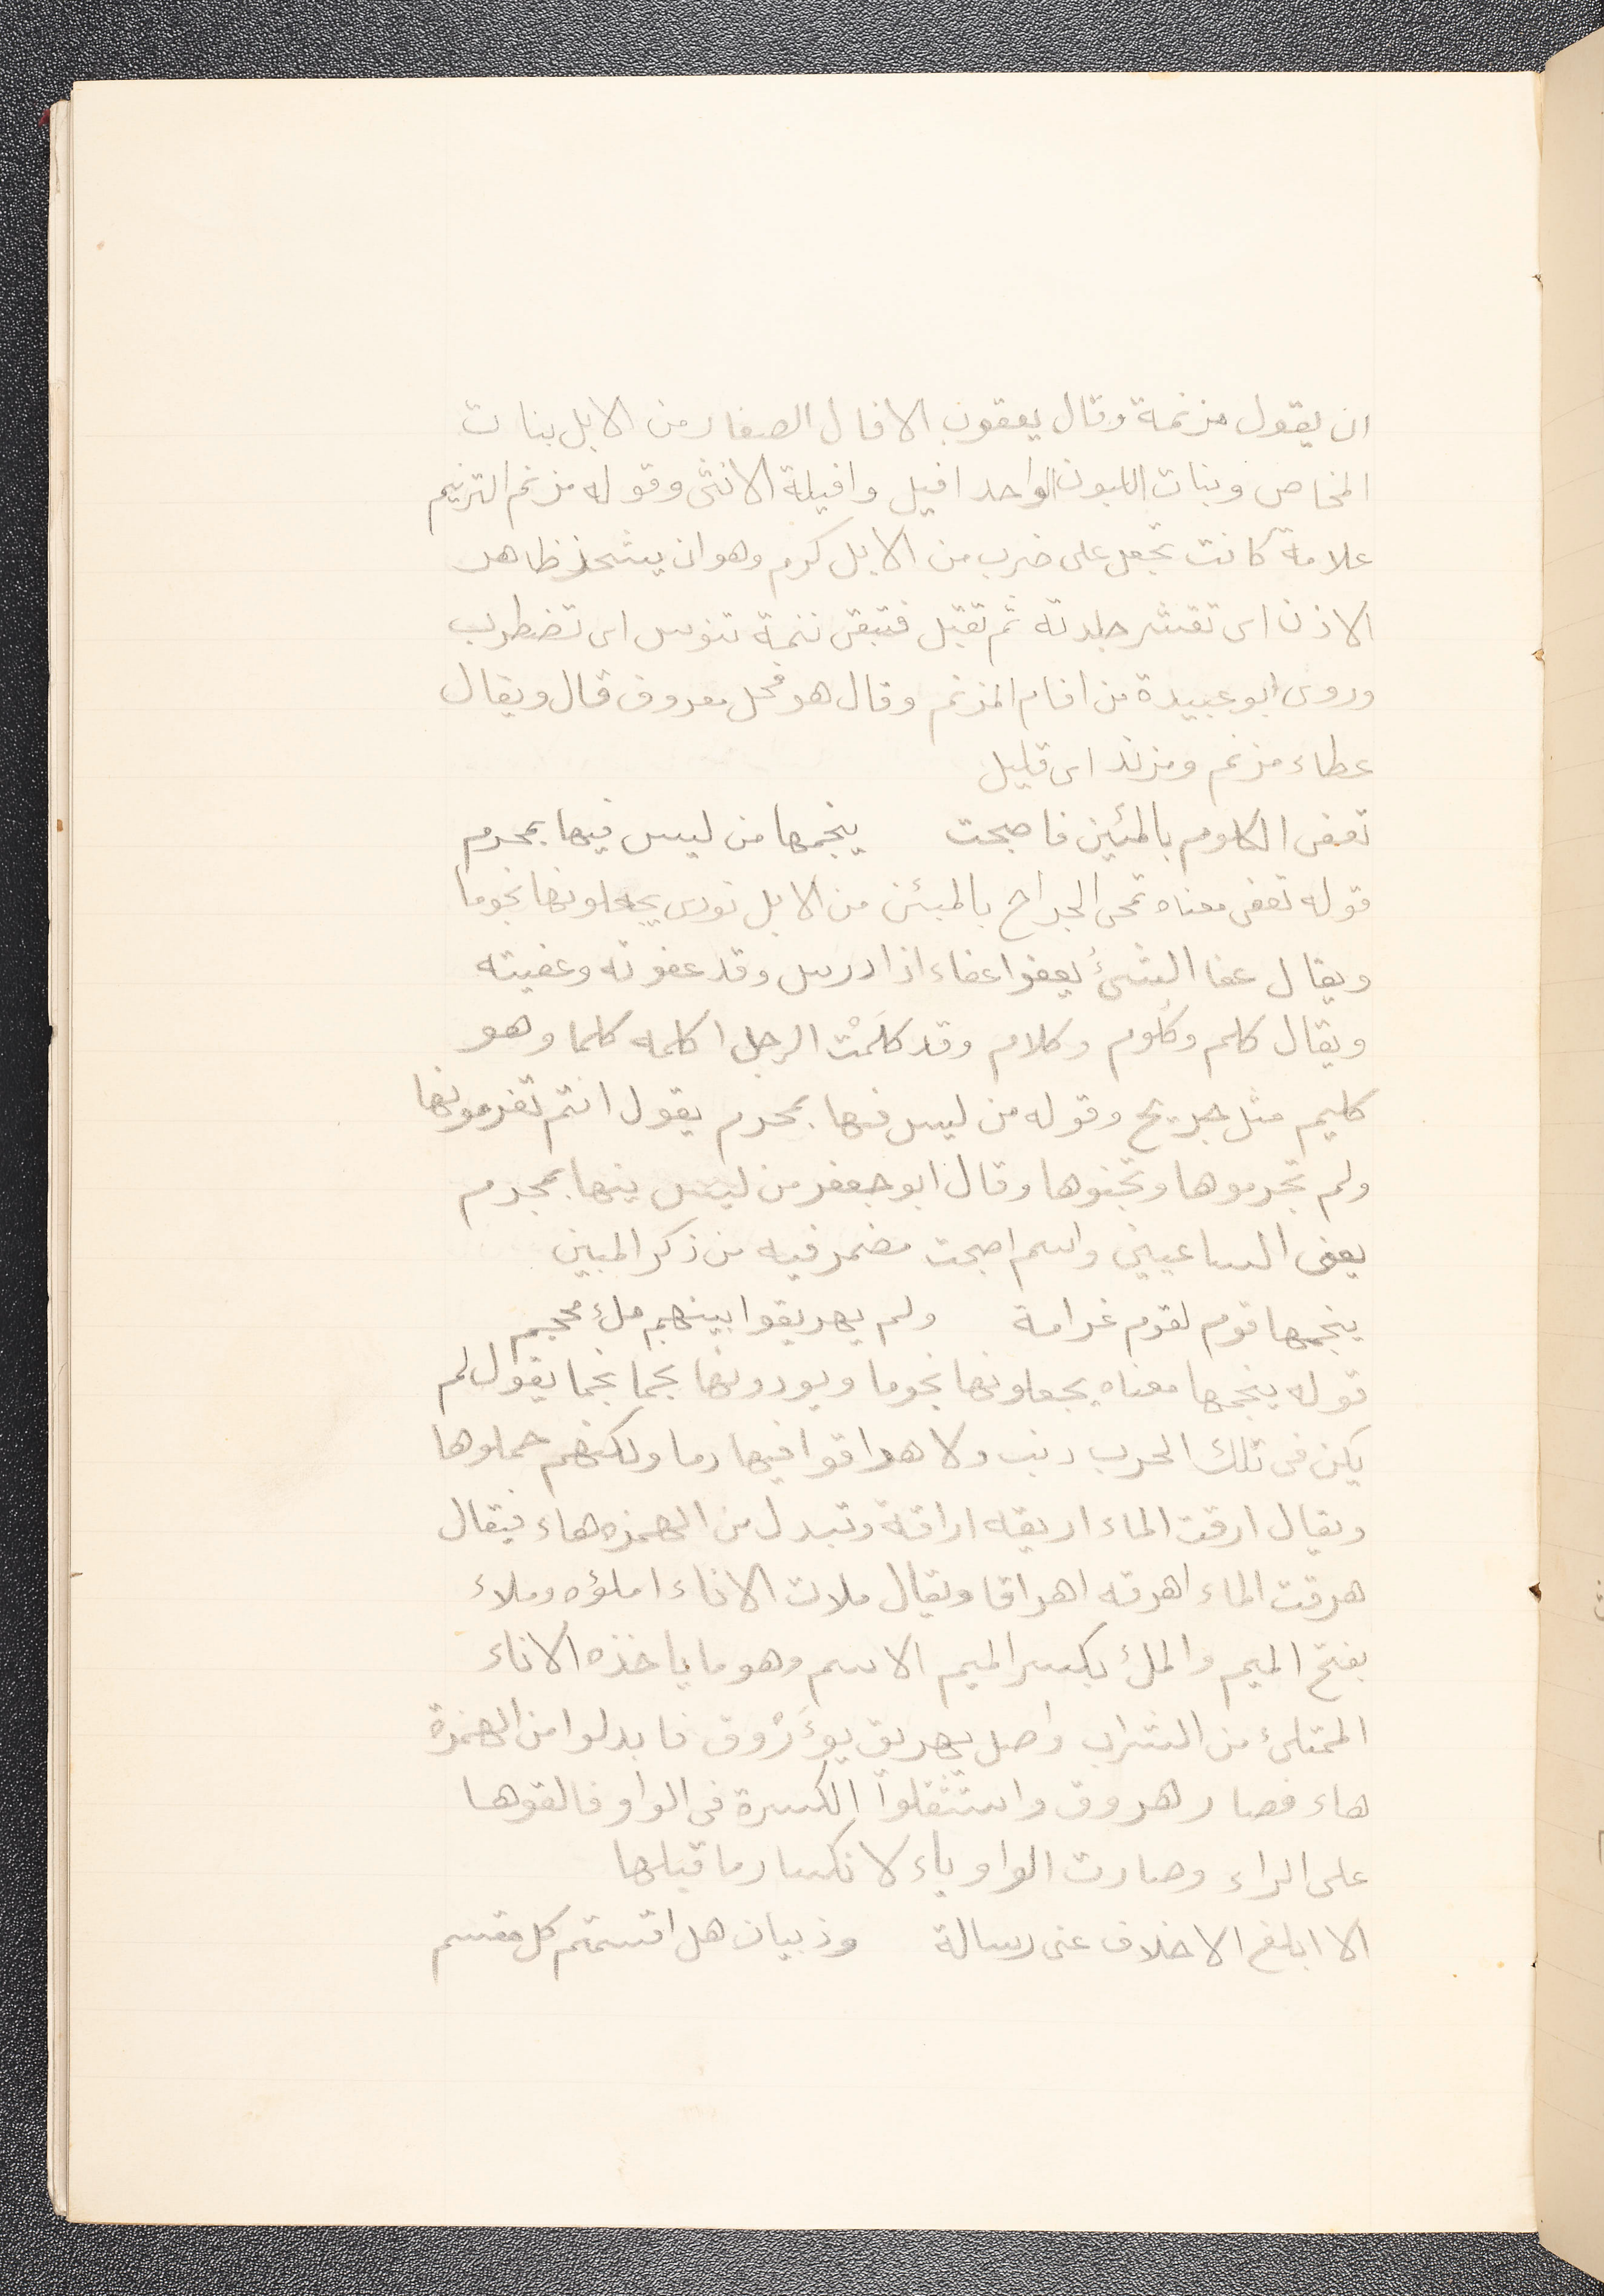 ان يقول مزنمة وقال يعقوب الافال الصغار من الابل بنات
المخاض وبنات اللبون الواحد افيل وافيلة الانثى وقوله مزنم التزنيم
علامة كانت تجعل على ضرب من الابل كرم وهو ان يشحذ ظاهر
الاذن اى تقشر جلدته ثم تفتل فتبقى زنمة تنوس اى تضطرب
وروى ابو عبيدة من افام المزنم وقال هو فحل معروف قال ويقال
عطاء مزنم ومزند اى قليل
تعفى الكلوم بالمئين فاصبحت ينجمها من ليس فيها بمجرم
قوله تعفى معناه تمحى الجراح بالمبئن من الابل تودى يجعلونها نجوما
ويقال عفا الشئ يعفوا عفاء اذا درس وقد عفوته وعفيته
ويقال كلم وكلوم وكلام وقد كلَمْت الرجل اكلمه كلما وهو
كليم مثل جريح وقوله من ليس فيها بمجرم يقول انتم تغرمونها
ولم تجرموها وتجنوها وقال ابو جعفر من ليس فيها بمجرم
يعنى الساعيين واسم اصبحت مضمر فيه من ذكر المبين
ينجمها قوم لقوم غرامة ولم يهريقوا بينهم ملء محجم
قوله ينجمها معناه يجعلونها نجوما ويودونها نجما نجما يقول لم
يكن فى تلك الحرب ذنب ولا هراقوا فيها دما ولكنهم حملوها
ويقال ارقت الماء اريقه اراقة وتبدل من الهمزه هاء فيقال
هرقت الماء اهرقه اهراقا ويقال ملات الاناء املؤه وملاء
بفتح الميم والملء بكسر الميم الاسم وهو ما ياخذه الاناء
الممتلئ من الشراب واصل يهريق يؤَرْوق فابدلوا من الهمزة
هاء فصار هروق واستثقلوا الكسرة فى الواو فالقوها
على الراء وصارت الواو ياء لانكسار ما قبلها
الا ابلغ الاخلاف عنى رسالة وذبيان هل اقسمتم كل مقسم